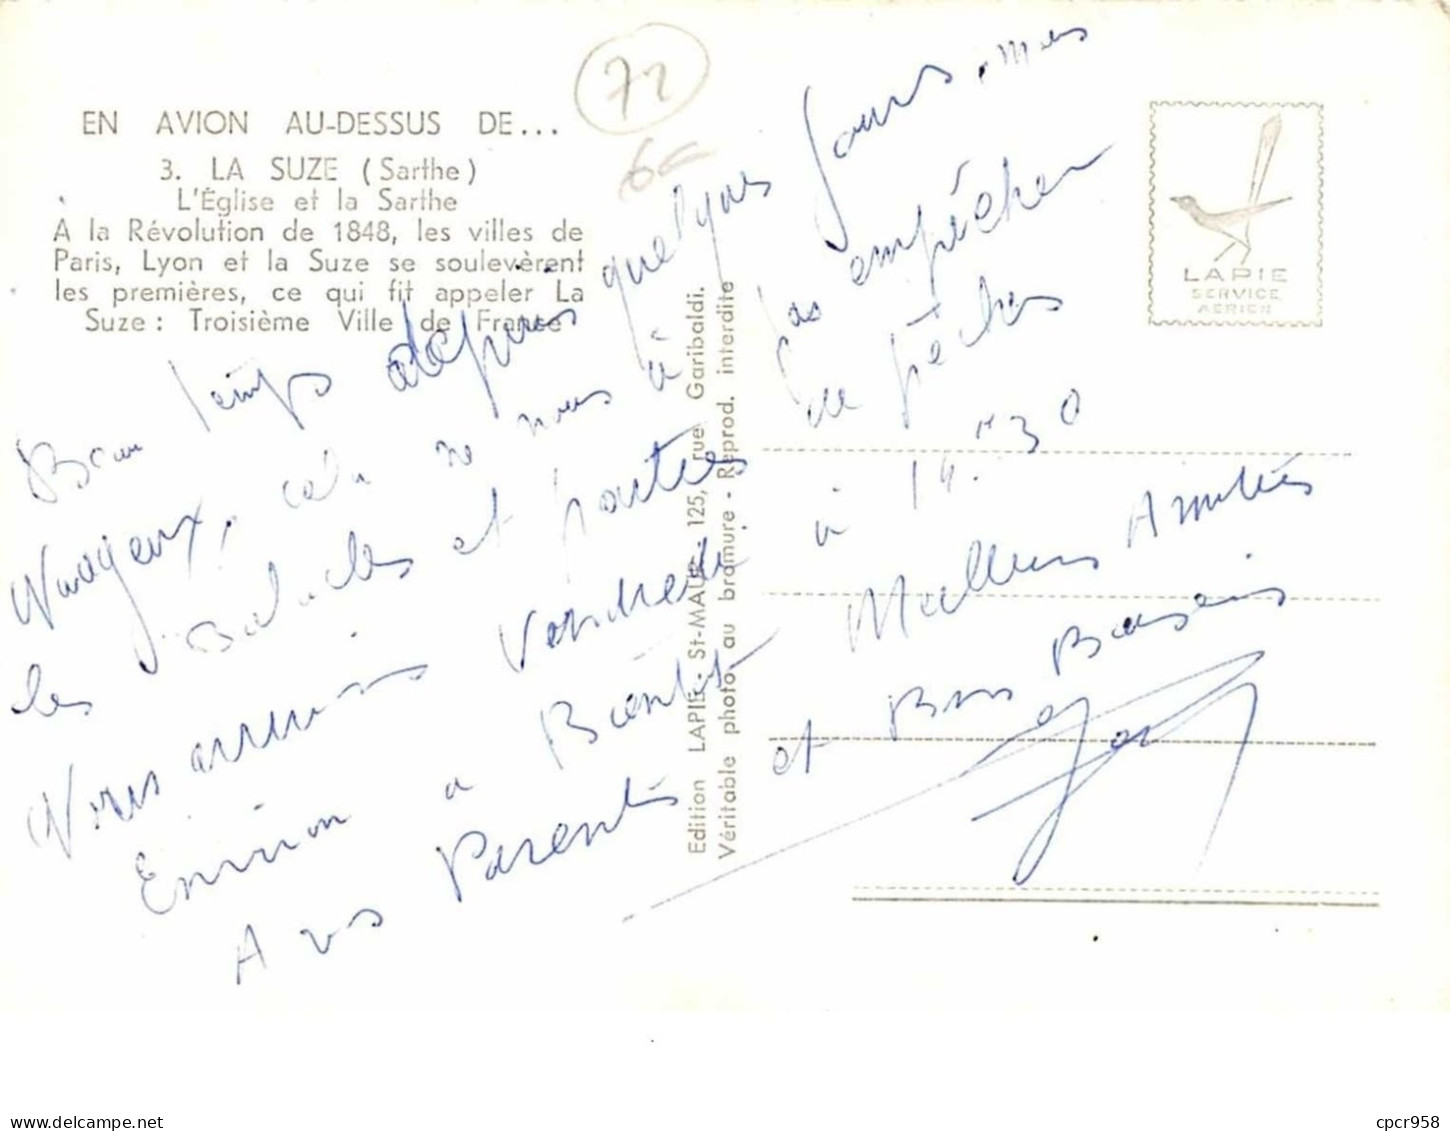 72
6€
EN AVION AU-DESSUS DE...
3. LA SUZE (Sarthe)
L'Église et la Sarthe
À la Révolution de 1848, les villes de
Paris, Lyon et la Suze se soulevèrent
les premières, ce qui fit appeler La
Suze : Troisième Ville de France
Edition LAPIE - St-MAUR 125, rue Garibaldi.
Véritable photo au bromure - Reprod. interdite
LAPIE
SERVICE
AERIEN
Beau temps depuis quelques jours, mais
Nuageux, cela ne nous à pas empêcher
les Balades et parties de pêches
Nous arrivons Vendredi à 14H30
Environ à Bientôt Meilleurs Amitiés
A vos Parents et Bons Baisers
cpcr958